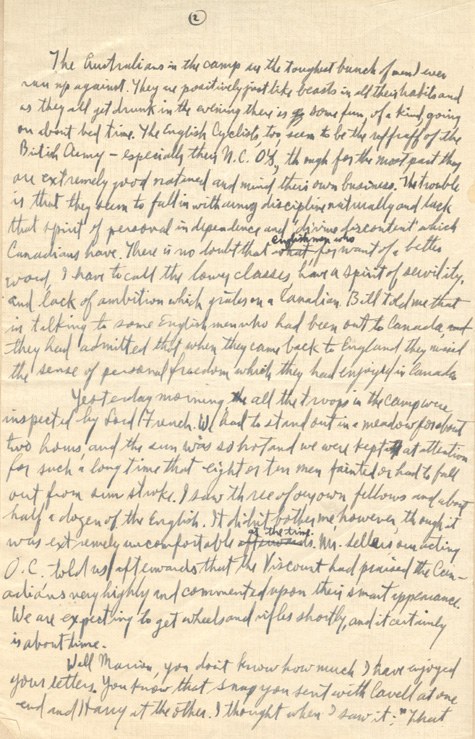 2
The Australians in the camp are the toughest bunch of men I ever
run up against. They are positively just like beasts in all their habits and
as they all get drunk in the evening there is some fun, of a kind, going
on about bed time. The English Cyclists, too seem to be the riffraff of the
British Army – especially their N.C.O's, though for the most part they
are extremely good natured and mind their own business. The trouble
is that they seem to fall in with army discipline naturally and lack
that spirit of personal independence and "divine discontent" which
Canadians have. There is no doubt that englishmen who for want of a better
word, I have to call the lower classes, have a spirit of servility,
and lack of ambition which grates on a Canadian. Bill told me that
in talking to some Englishmen who had been out to Canada,
they had admitted that when they came back to England they missed
the sense of personal freedom which they had enjoyed in Canada
Yesterday morning all the troops in the camp were
inspected by Lord French. We had to stand out in a meadow for about
two hours, and the sun was so hot and we were kept at attention
for such a long time that eight or ten men fainted or had to fall
out from sun stroke. I saw three of our own fellows and about
half a dozen of the English. It didn't bother me however though it
was extremely uncomfortable at the time. Mr. Sellers our acting
O.C. told us afterwards that the Viscount had praised the Can-
adians very highly and commented upon their smart appearance.
We are expecting to get wheels and rifles shortly, and it certainly
is about time.
Well Marion, you don't know how much I have enjoyed
your letters. You know that snap you sent with Cavell at one
end and Harry at the other. I thought when I saw it; "That